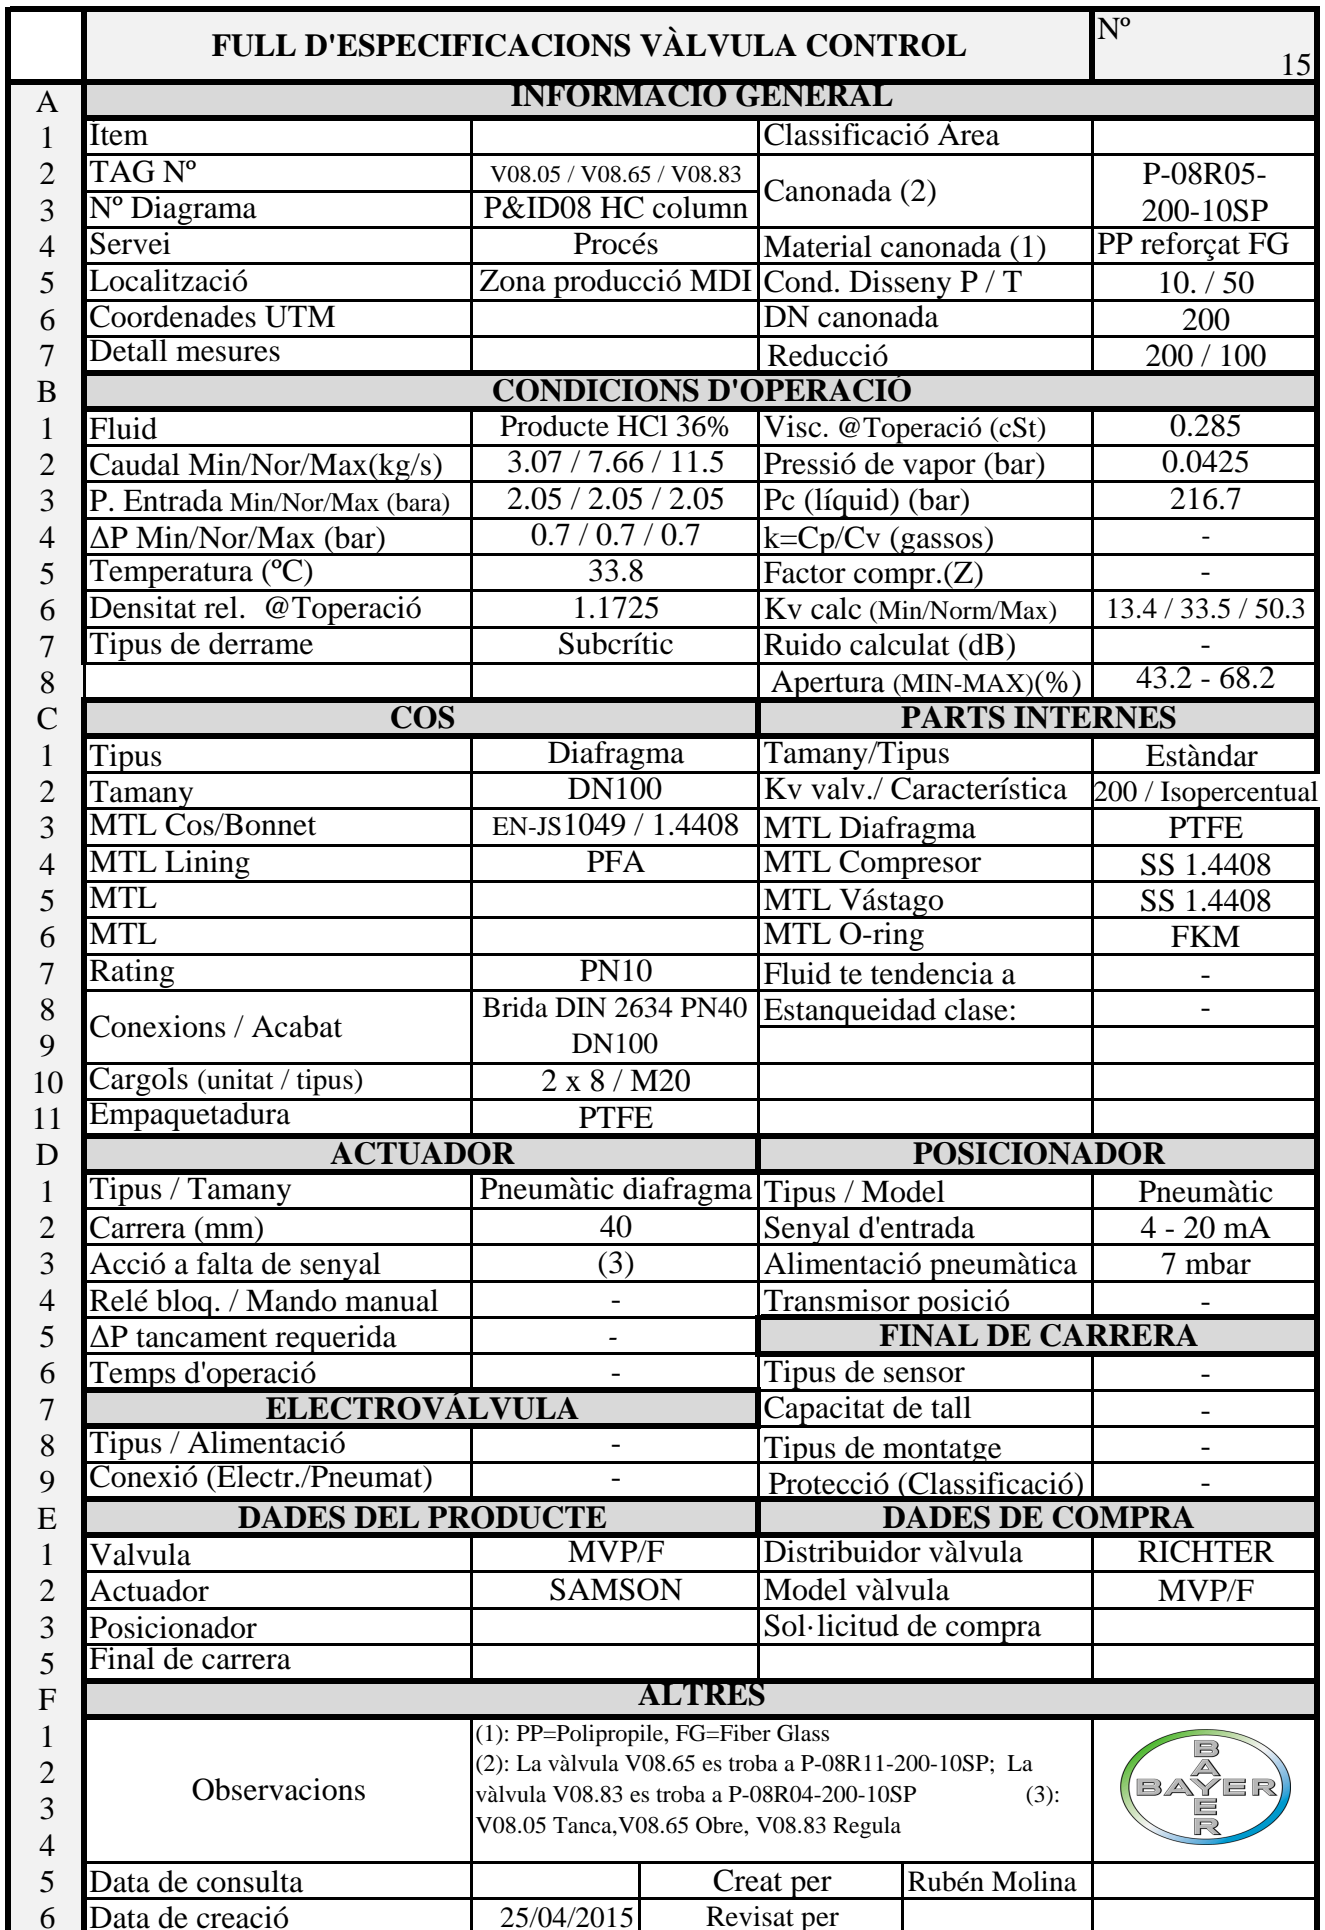 FULL D'ESPECIFICACIONS VÀLVULA CONTROL Nº 15
A INFORMACIÓ GENERAL
1 Ítem Classificació Àrea
2 TAG Nº V08.05 / V08.65 / V08.83 Canonada (2) P-08R05-
3 Nº Diagrama P&ID08 HC column 200-10SP
4 Servei Procés Material canonada (1) PP reforçat FG
5 Localització Zona producció MDI Cond. Disseny P / T 10. / 50
6 Coordenades UTM DN canonada 200
7 Detall mesures Reducció 200 / 100
B CONDICIONS D'OPERACIÓ
1 Fluid Producte HCl 36% Visc. @Toperació (cSt) 0.285
2 Caudal Min/Nor/Max(kg/s) 3.07 / 7.66 / 11.5 Pressió de vapor (bar) 0.0425
3 P. Entrada Min/Nor/Max (bara) 2.05 / 2.05 / 2.05 Pc (líquid) (bar) 216.7
4 ΔP Min/Nor/Max (bar) 0.7 / 0.7 / 0.7 k=Cp/Cv (gassos) -
5 Temperatura (ºC) 33.8 Factor compr.(Z) -
6 Densitat rel. @Toperació 1.1725 Kv calc (Min/Norm/Max) 13.4 / 33.5 / 50.3
7 Tipus de derrame Subcrític Ruido calculat (dB) -
8 Apertura (MIN-MAX)(%) 43.2 - 68.2
C COS PARTS INTERNES
1 Tipus Diafragma Tamany/Tipus Estàndar
2 Tamany DN100 Kv valv./ Característica 200 / Isopercentual
3 MTL Cos/Bonnet EN-JS1049 / 1.4408 MTL Diafragma PTFE
4 MTL Lining PFA MTL Compresor SS 1.4408
5 MTL MTL Vástago SS 1.4408
6 MTL MTL O-ring FKM
7 Rating PN10 Fluid te tendencia a -
8 Conexions / Acabat Brida DIN 2634 PN40 Estanqueidad clase: -
9 DN100
10 Cargols (unitat / tipus) 2 x 8 / M20
11 Empaquetadura PTFE
D ACTUADOR POSICIONADOR
1 Tipus / Tamany Pneumàtic diafragma Tipus / Model Pneumàtic
2 Carrera (mm) 40 Senyal d'entrada 4 - 20 mA
3 Acció a falta de senyal (3) Alimentació pneumàtica 7 mbar
4 Relé bloq. / Mando manual - Transmisor posició -
5 ΔP tancament requerida - FINAL DE CARRERA
6 Temps d'operació - Tipus de sensor -
7 ELECTROVÁLVULA Capacitat de tall -
8 Tipus / Alimentació - Tipus de montatge -
9 Conexió (Electr./Pneumat) - Protecció (Classificació) -
E DADES DEL PRODUCTE DADES DE COMPRA
1 Valvula MVP/F Distribuidor vàlvula RICHTER
2 Actuador SAMSON Model vàlvula MVP/F
3 Posicionador Sol·licitud de compra
5 Final de carrera
F ALTRES
1 (1): PP=Polipropile, FG=Fiber Glass
2 (2): La vàlvula V08.65 es troba a P-08R11-200-10SP; La
Observacions
3 vàlvula V08.83 es troba a P-08R04-200-10SP (3):
4 V08.05 Tanca,V08.65 Obre, V08.83 Regula
BAYER
BAYER
5 Data de consulta Creat per Rubén Molina
6 Data de creació 25/04/2015 Revisat per